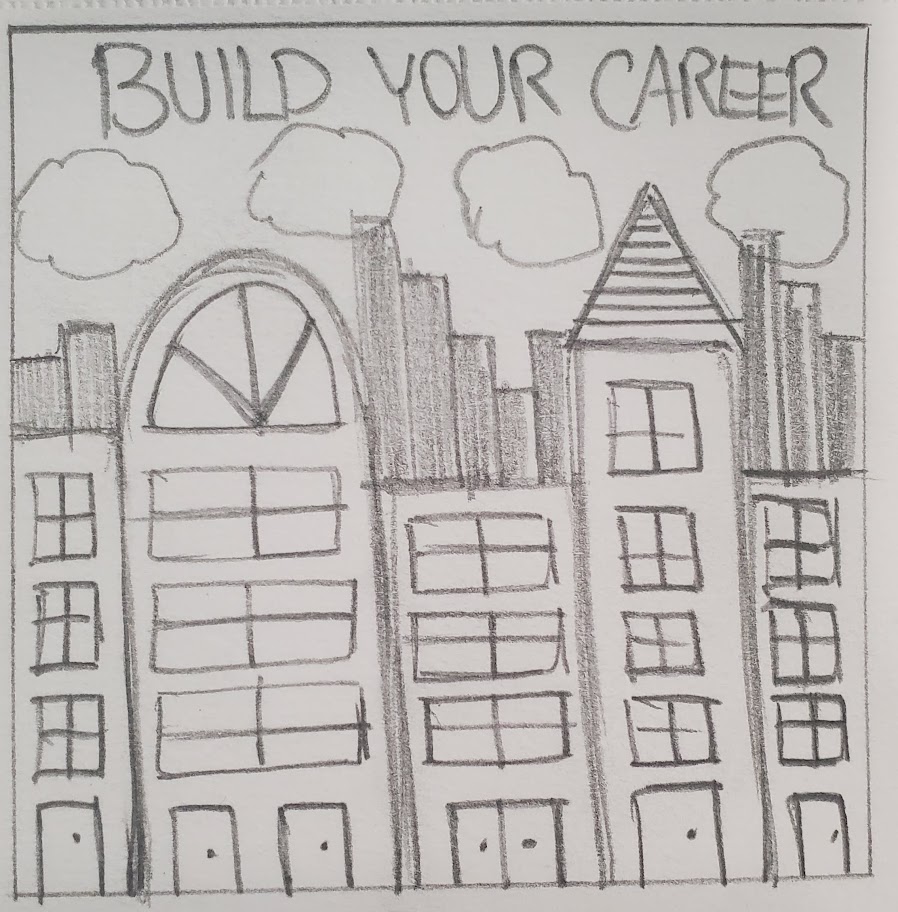 BUILD YOUR CAREER